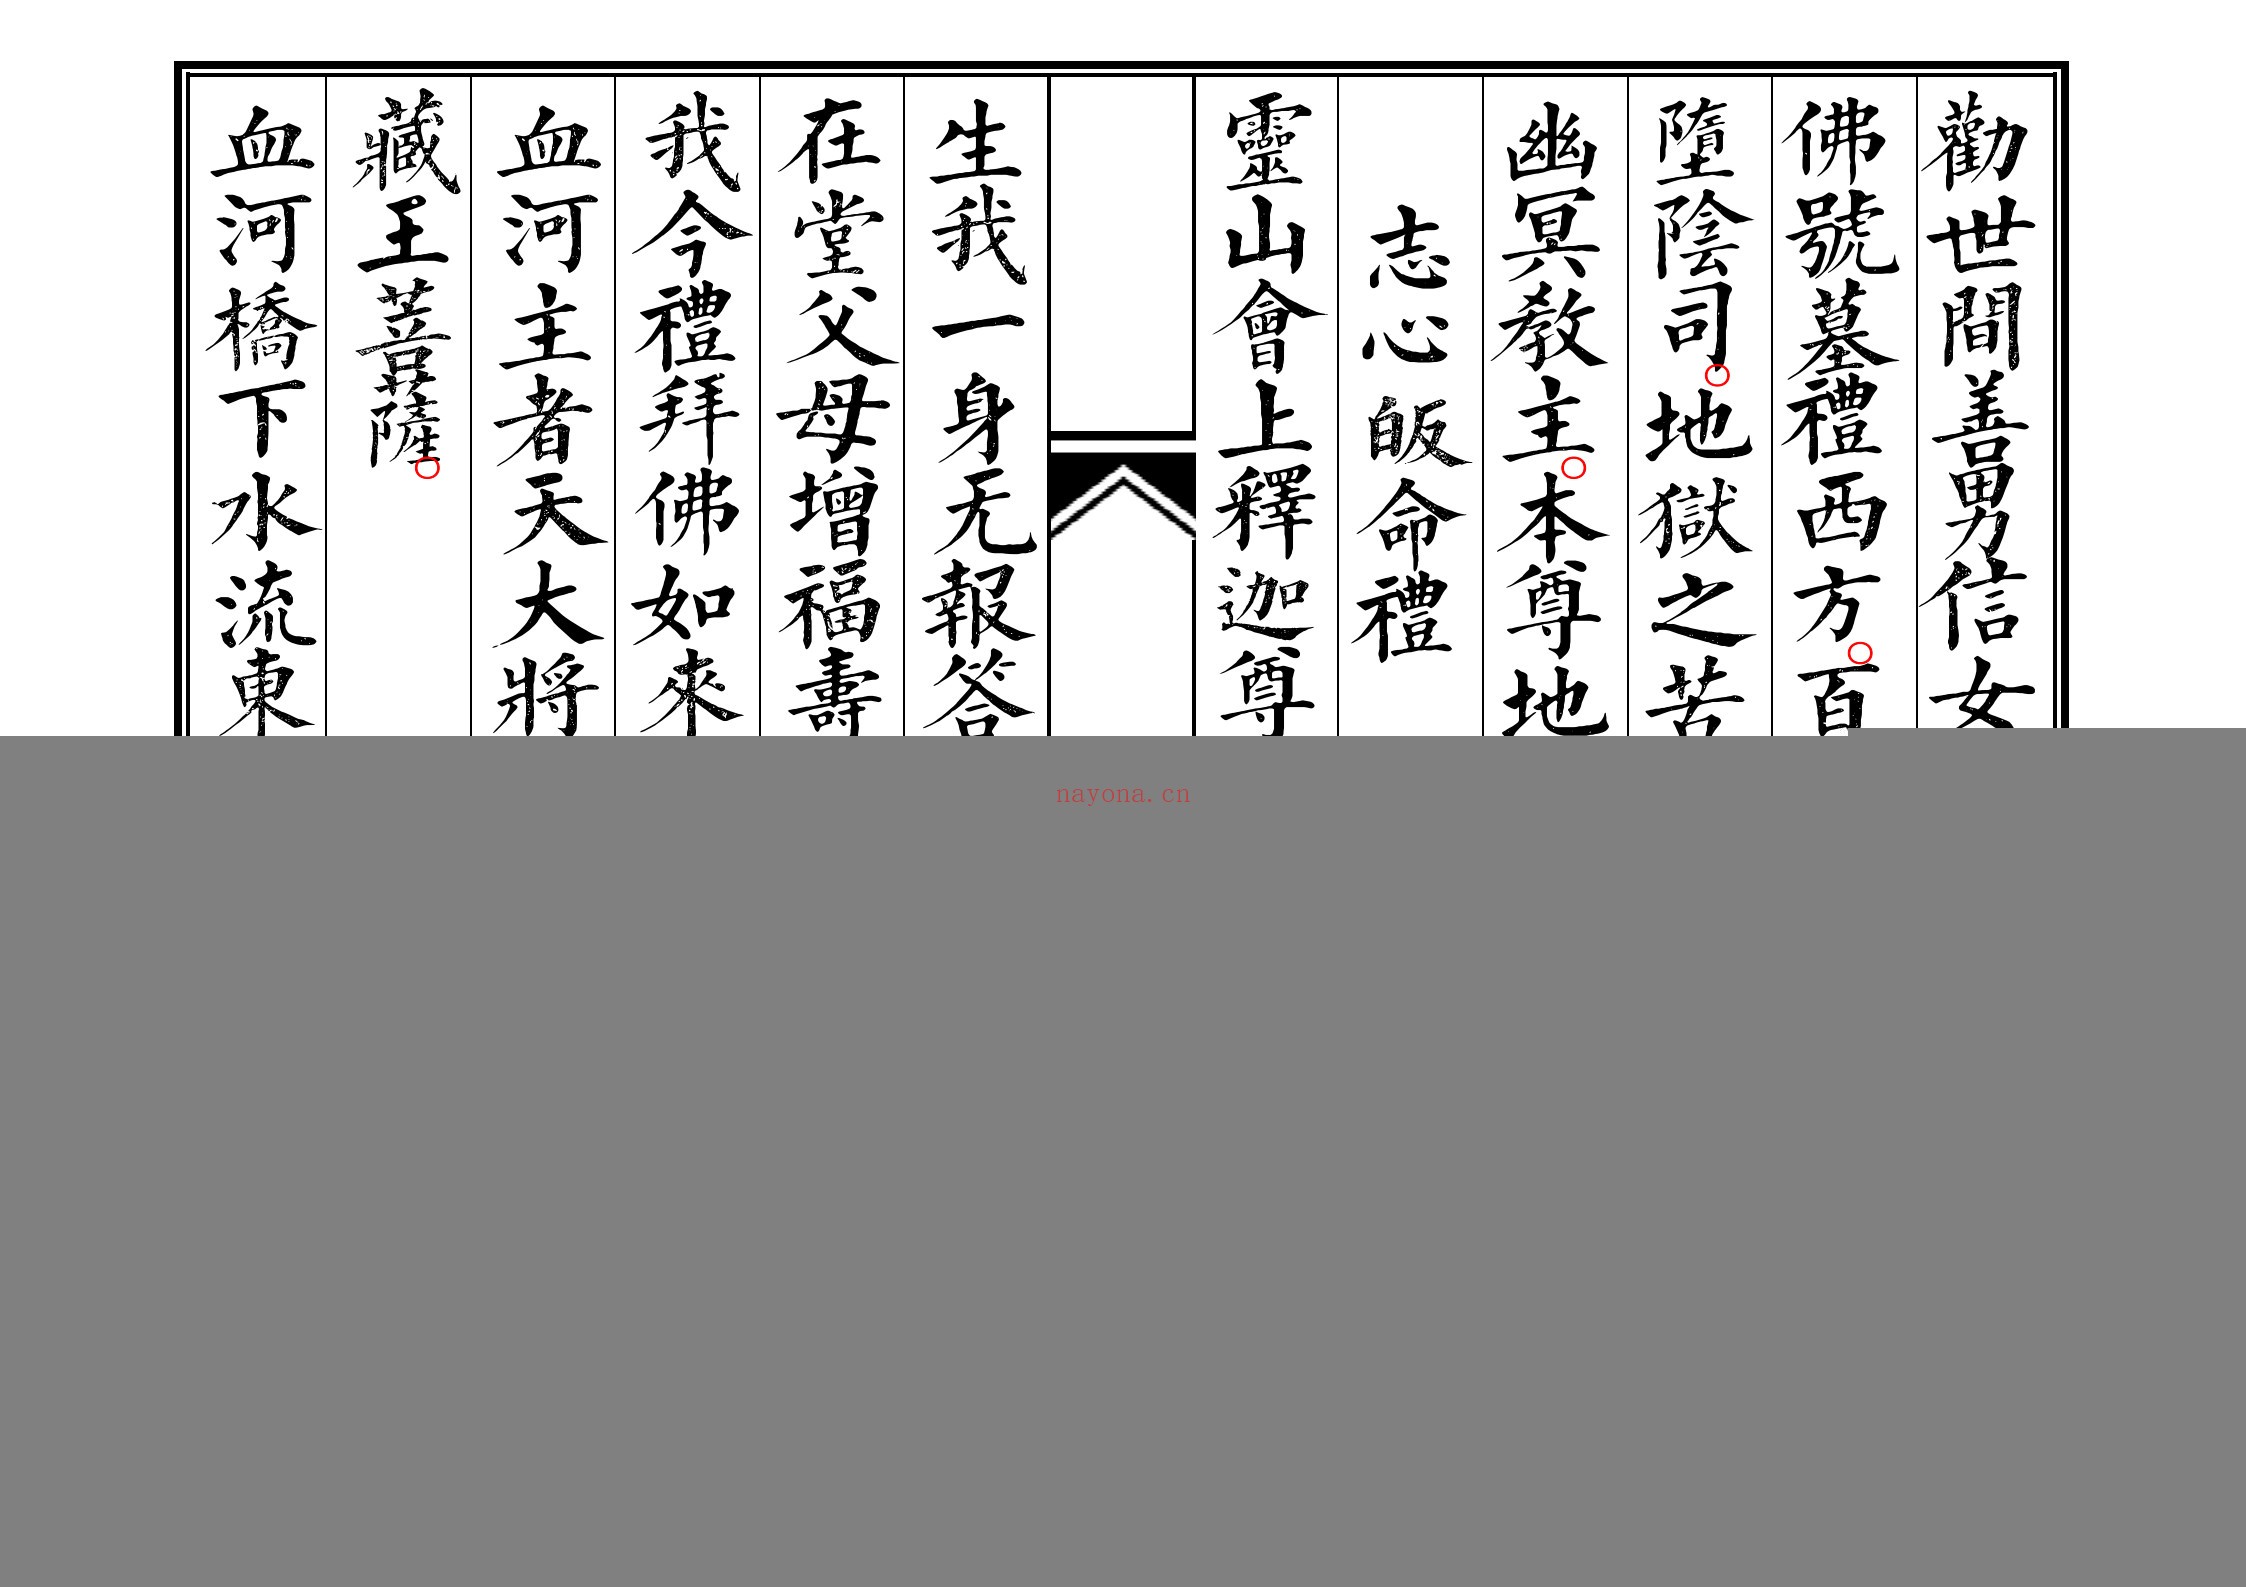 勸世間善男信女
佛號墓禮西方○百
墮陰司○地獄之苦
幽冥教主○本尊地
志心皈命禮
靈山會上釋迦尊
生我一身无報答
在堂父母增福壽
我今禮拜佛如來
血河主者天大將
藏王菩薩○
血河橋下水流東
nayona.cn